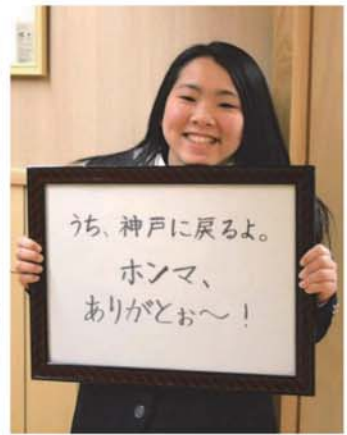 うち、神戸に戻るよ。
ホンマ、
ありがとぉ〜！